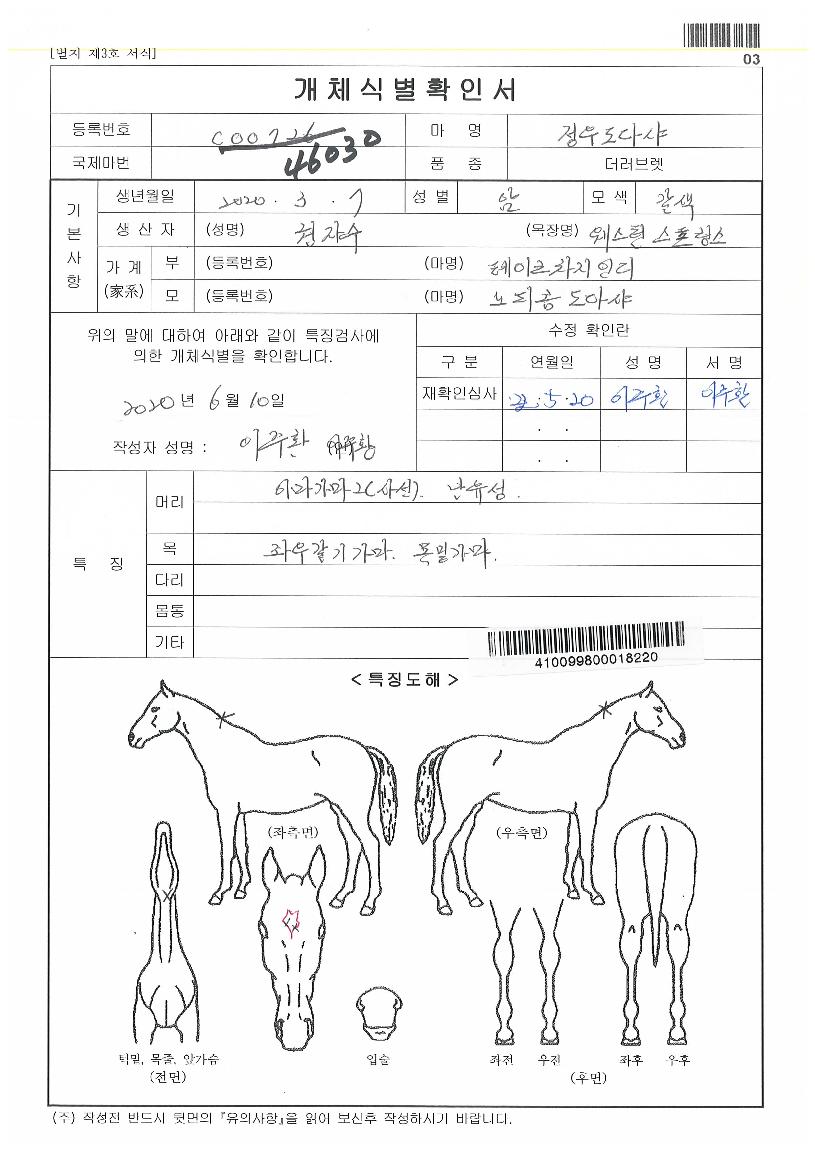 [별지 제3호 서식]
03
개체식별확인서
등록번호 C00726 46030 마 명 정우도다샤
국제마번 품 종 더러브렛
기본사항
생년월일 2020 . 3 . 7 성 별 암 모 색 갈색
생 산 자 (성명) 권자수 (목장명) 웨스틴 스프링스
가 계 (家系) 부 (등록번호) (마명) 테이크차지인디
모 (등록번호) (마명) 노티콤 도마샤
위의 말에 대하여 아래와 같이 특징검사에
의한 개체식별을 확인합니다.
2020 년 6 월 10 일
작성자 성명 : 이주환 이주환
수정 확인란
구 분 연월일 성 명 서 명
재확인심사 22.5.20 이주환 이주환
. .
. .
특 징
머리 이마가마2(사선). 난유성.
목 좌우갈기가마. 목밑가마.
다리
몸통
기타
410099800018220
< 특징도해 >
(좌측면) (우측면)
턱밑, 목줄, 앞가슴 입술 좌전 우전 좌후 우후
(전면) (후면)
(주) 작성전 반드시 뒷면의 『유의사항』을 읽어 보신후 작성하시기 바랍니다.